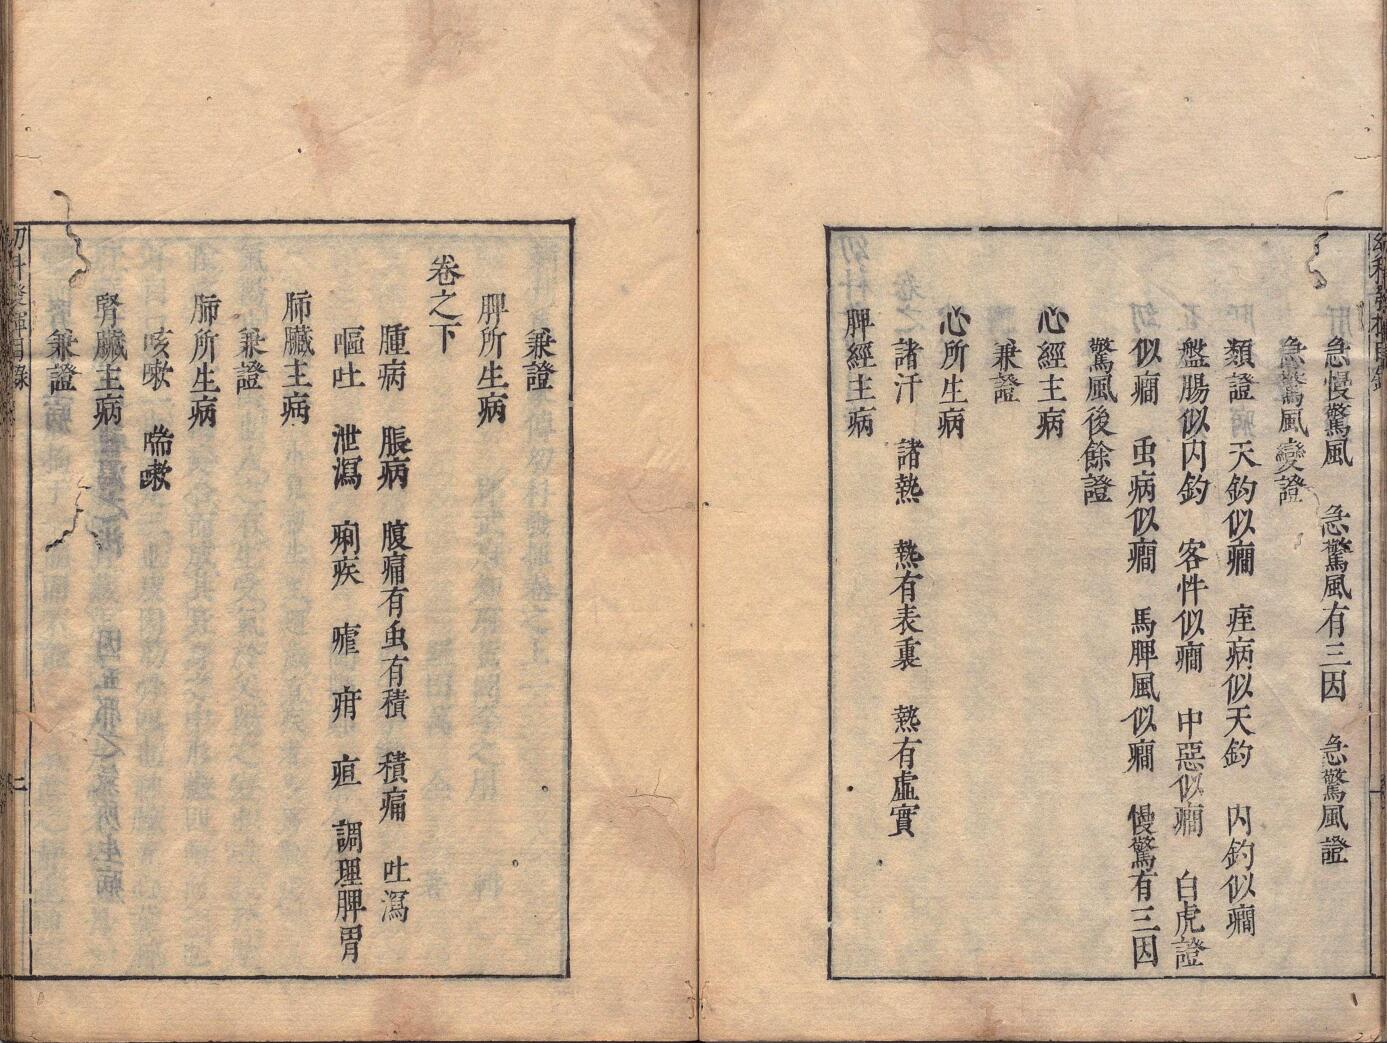 急慢驚風　急驚風有三因　急驚風證
急驚風變證
類證　天釣似癎　痓病似天釣　内釣似癎
盤腸似内釣　客忤似癎　中惡似癎　白虎證
似癎　虫病似癎　馬脾風似癎　慢驚有三因
驚風後餘證
心經主病
兼證
心所生病
諸汗　諸熱　熱有表裏　熱有虛實
脾經主病
兼證
脾所生病
卷之下
腫病　脹病　腹痛有虫有積　積痛　吐瀉
嘔吐　泄瀉　痢疾　瘧　疳　疸　調理脾胃
肺臟主病
兼證
肺所生病
咳嗽　喘嗽
腎臟主病
兼證
幼科發揮目錄